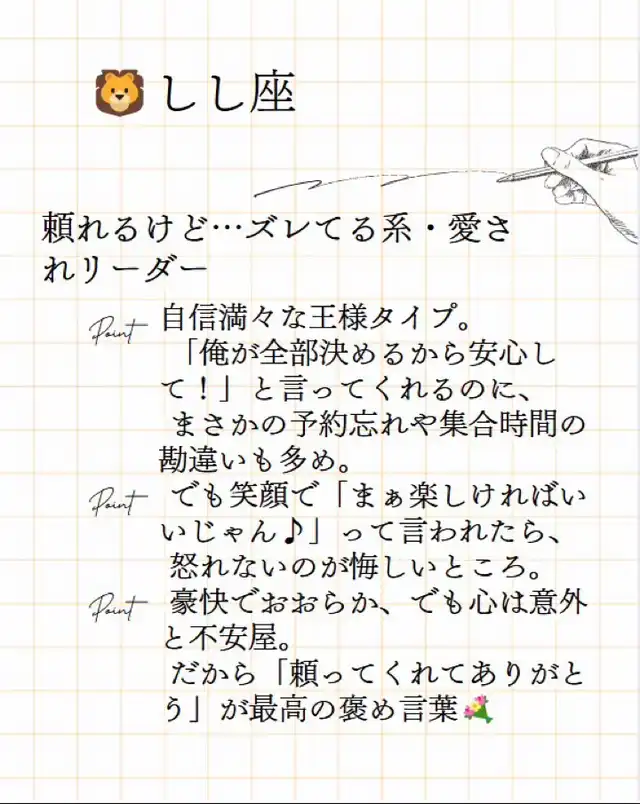 🦁 しし座
頼れるけど…ズレてる系・愛さ
れリーダー
Point 自信満々な王様タイプ。
「俺が全部決めるから安心し
て！」と言ってくれるのに、
まさかの予約忘れや集合時間の
勘違いも多め。
Point でも笑顔で「まぁ楽しければい
いじゃん♪」って言われたら、
怒れないのが悔しいところ。
Point 豪快でおおらか、でも心は意外
と不安屋。
だから「頼ってくれてありがと
う」が最高の褒め言葉💐